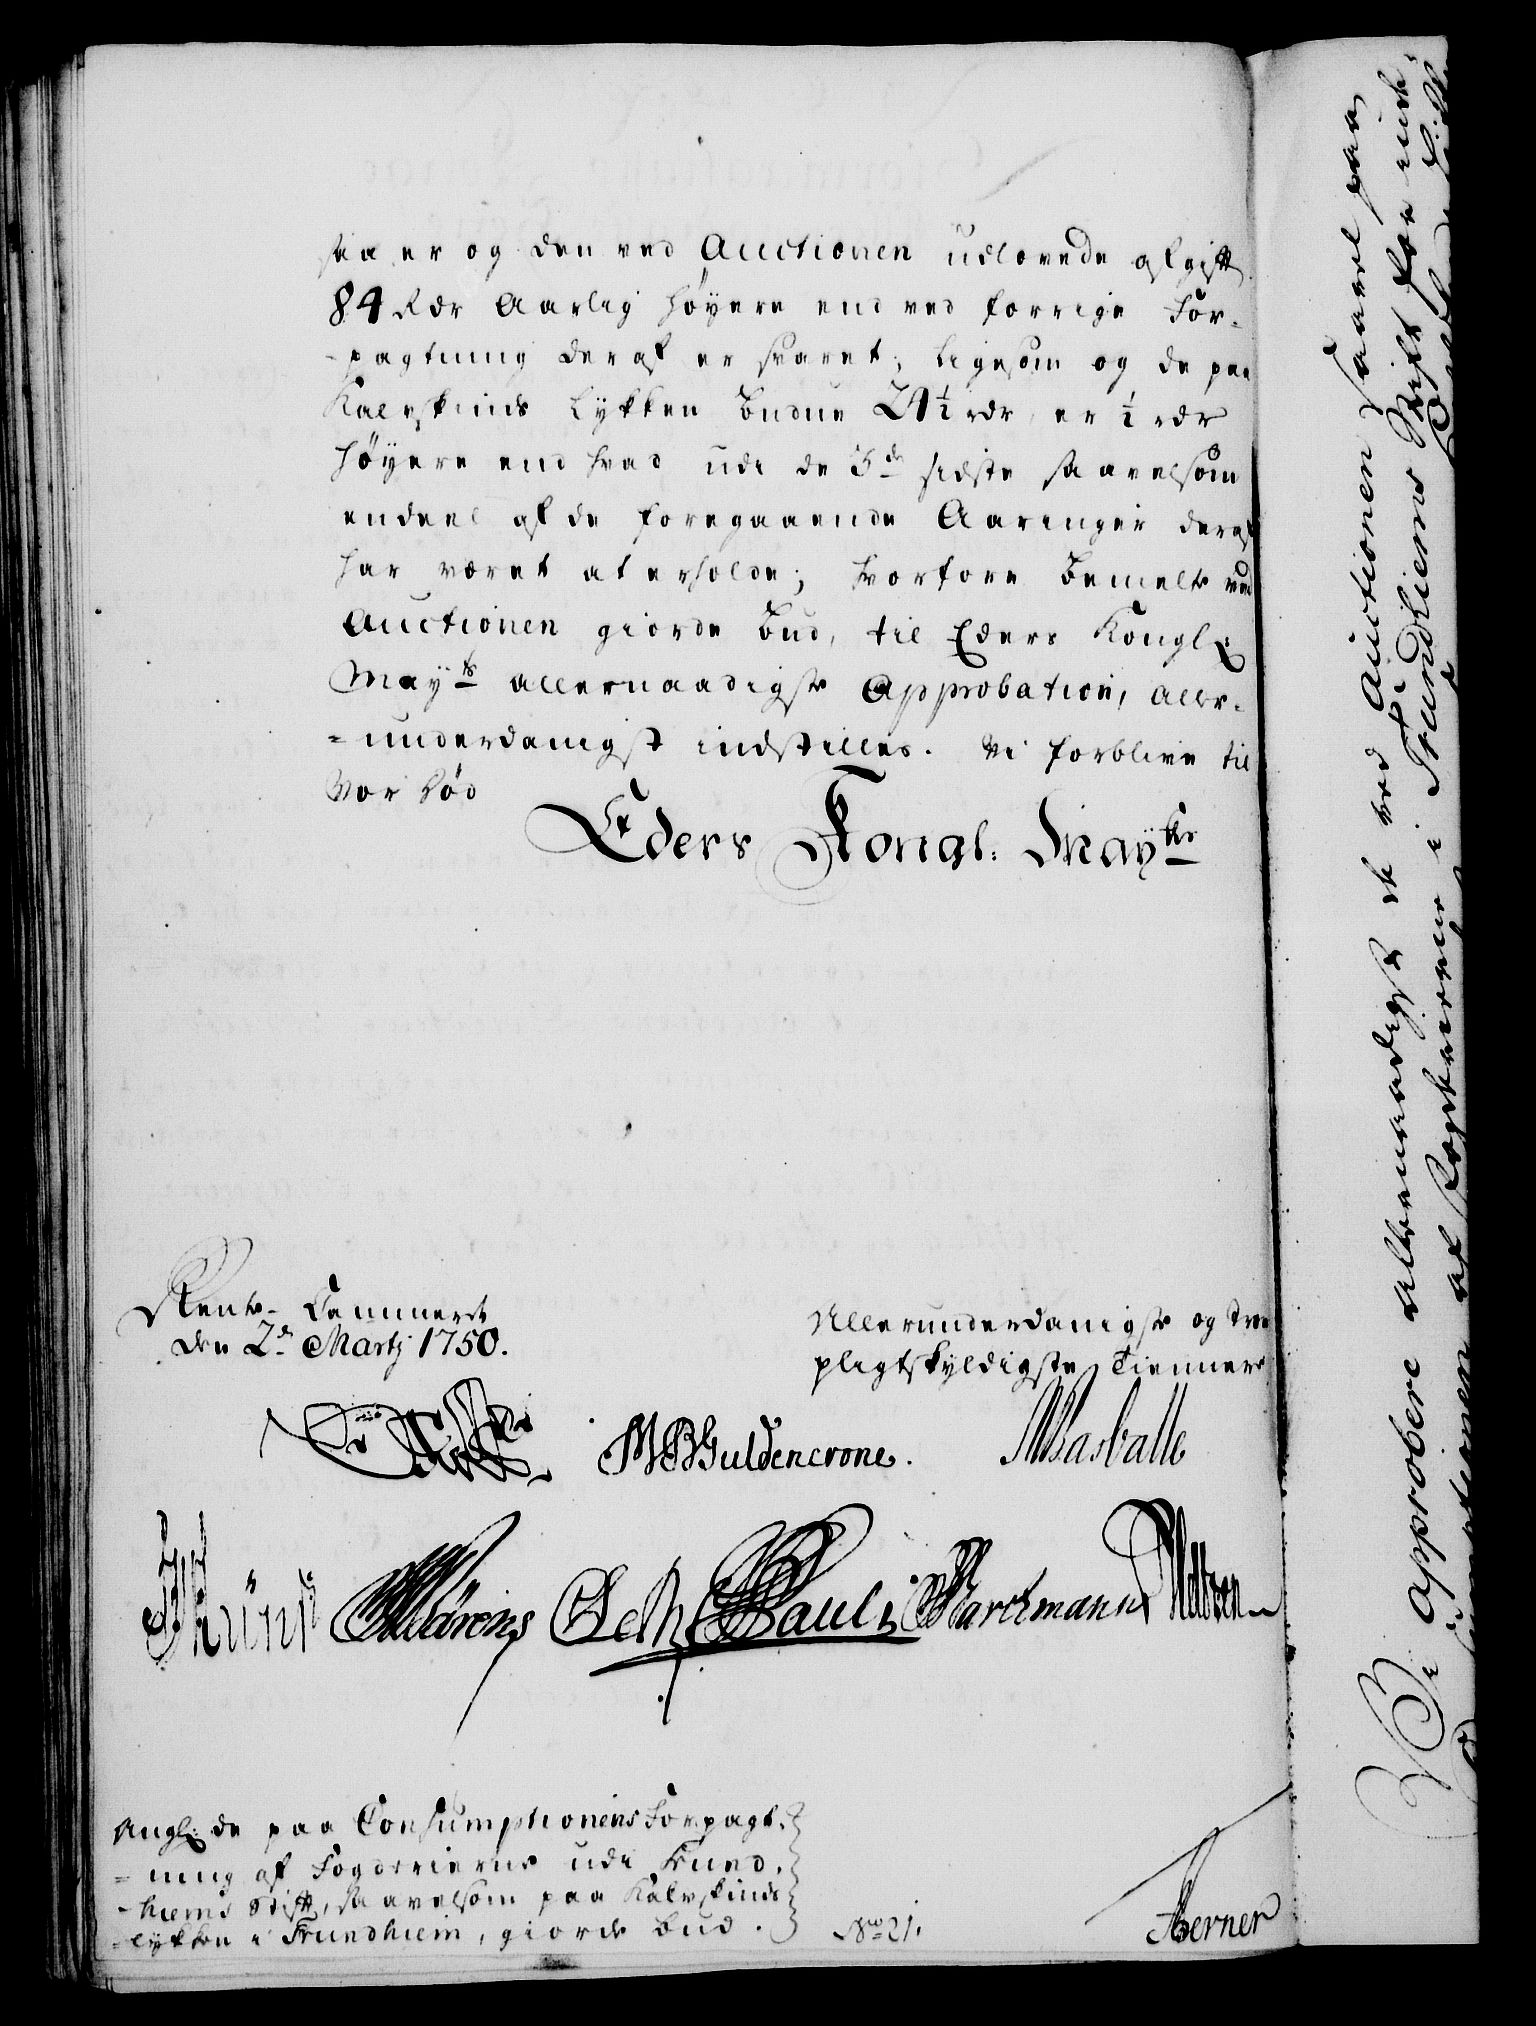 saa er og den ved Auctionen udlovede afgift
84 Rdr Aarlig høyere end ved forrige For-
-pagtning deraf er svaret; ligesom og de paa
Kalvskinds Lykken budne 24½ rdr, er ½ rdr
høyere end hvad udi de 3de sidste saavelsom
endeel af de foregaaende Aaringer deraf
har været at erholde; hvorfore bemelte ved
Auctionen giorde bud, til Eders Kongl:
Mayts allernaadigste Approbation, aller-
=underdanigst indstilles. Vi forblive til
vor død
Eders Kongl: Mayts
Rente-Cammeret
den 2de Martj 1750.
Allerunderdanigste og troe
pligtskyldigste Tiennere
MBGuldencrone.
Pauli
Angl: de paa Consumptionens Forpagt-
=ning af Fogderierne udi Trund-
-hiems Stift, saavelsom paa Kalvskinds
=lykken i Trundhiem, giorde bud.
No 21.
Berner
Vi approbere allernaadigst de ved Auctionen saavel paa
Consumptionen af Fogderierne i Trundhiems Stift for inde-